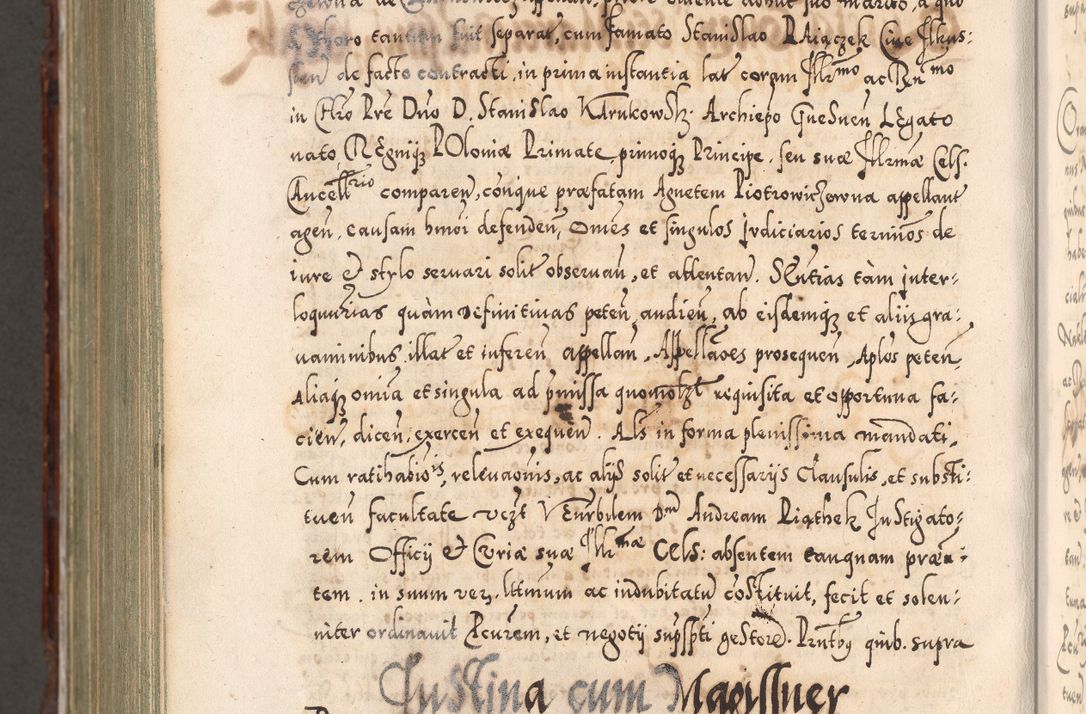 & thoro tantum fuit separat, cum famato Stanislao Driączek Cive Ilkus-
sien de facto contracti, in prima instantia lat coram Illrmo ac Ren mo
in Chro Pre Dno D. Stanislao Karnkowsk. Archiepo Gnesnen LEgato
nato, REgniq POloniæ Primate, primoq Principe, seu suæ Illrmæ Cels.
Cancellrio comparen, conique præfatam Agnetem Piotrowiczowna appellant
agen, causam hmoi defenden, Omes et singulos judiciarios terminos de
iure & stylo servari solit observan, et attentan. SEntias tàm inter-
loqutrias quàm definitivas peten, audien, ab eisdemq et aliis gra-
vaminibus illat et inferen appellan, Appellaoes prosequen, Aplos peten
Aliaq omia et singula ad pmissa quomolzt requisita et opportuna fa-
cien, dicen, exercen et exequen. Als in forma plenissima mandati,
Cum ratihabiois, relevaonis, ac alijs solit et necessarijs Clausulis, et substi-
tuen facultate vezt VEnrbilem Dnm Andream Piąthek Instigato-
rem Officij & Curiæ suæ Illrmæ Cels: absentem tanquam præn-
tem. in suum ver, lttmum ac indubitatu constituit, fecit et solen-
niter ordinavit Pcurem, et negotij supsspti gestore. Prntby quib. supra
Iustina cum Magissner